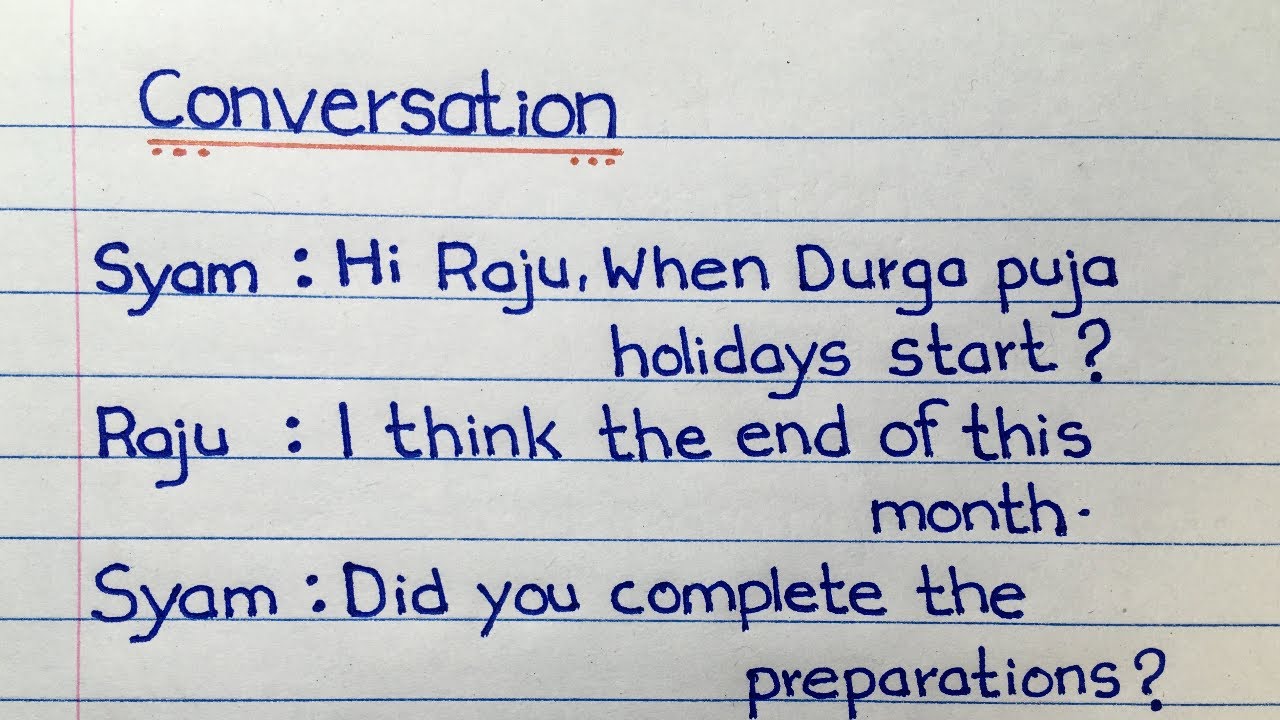 Conversation
Syam : Hi Raju, When Durga puja
holidays start ?
Raju : I think the end of this
month.
Syam : Did you complete the
preparations ?